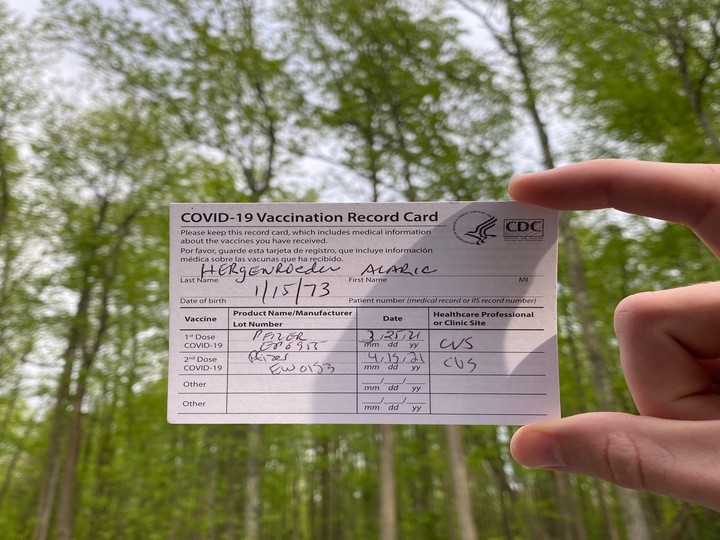 COVID-19 Vaccination Record Card
Please keep this record card, which includes medical information
about the vaccines you have received.
Por favor, guarde esta tarjeta de registro, que incluye información
médica sobre las vacunas que ha recibido.
CDC
HERgENROEDER ALARIC
Last Name First Name MI
1/15/73
Date of birth Patient number (medical record or IIS record number)
Vaccine Product Name/Manufacturer Date Healthcare Professional
Lot Number or Clinic Site
1st Dose PFIZER 3/25/21 CVS
COVID-19 mm dd yy
2nd Dose Pfizer 4/15/21 CVS
COVID-19 EW0153 mm dd yy
Other / /
mm dd yy
Other / /
mm dd yy